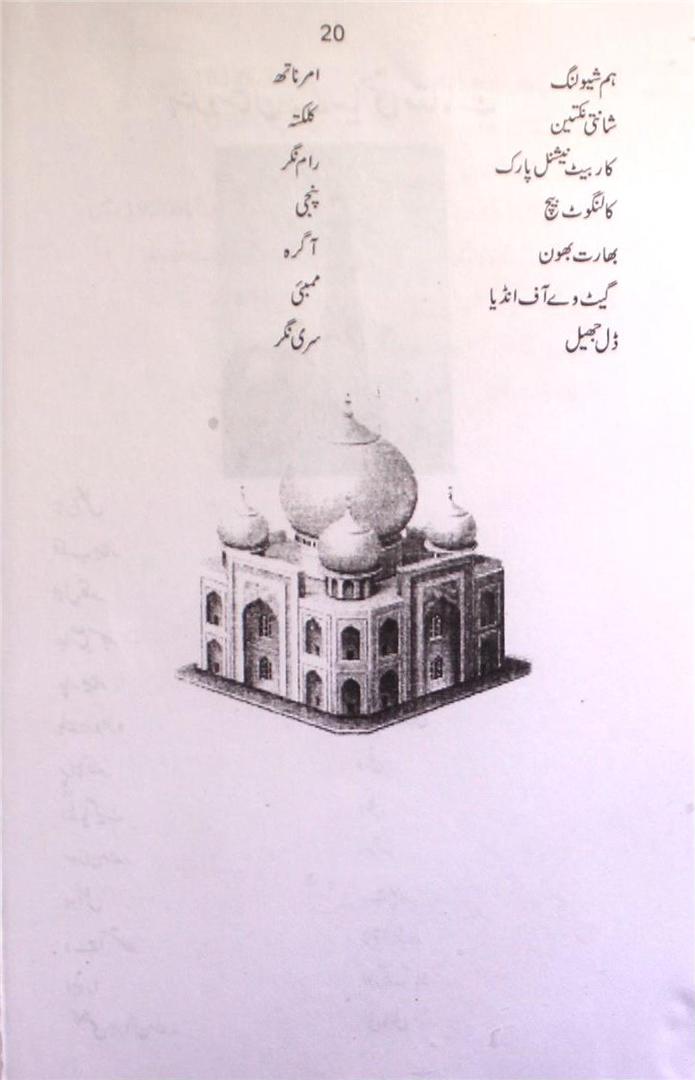 20
ہم شیولنگ امرناتھ
شانتی نکیتین کلکتہ
کاربیٹ نیشنل پارک رام نگر
کالنگوٹ بیچ پنجی
بھارت بھون آگرہ
گیٹ وے آف انڈیا ممبئی
ڈل جھیل سری نگر